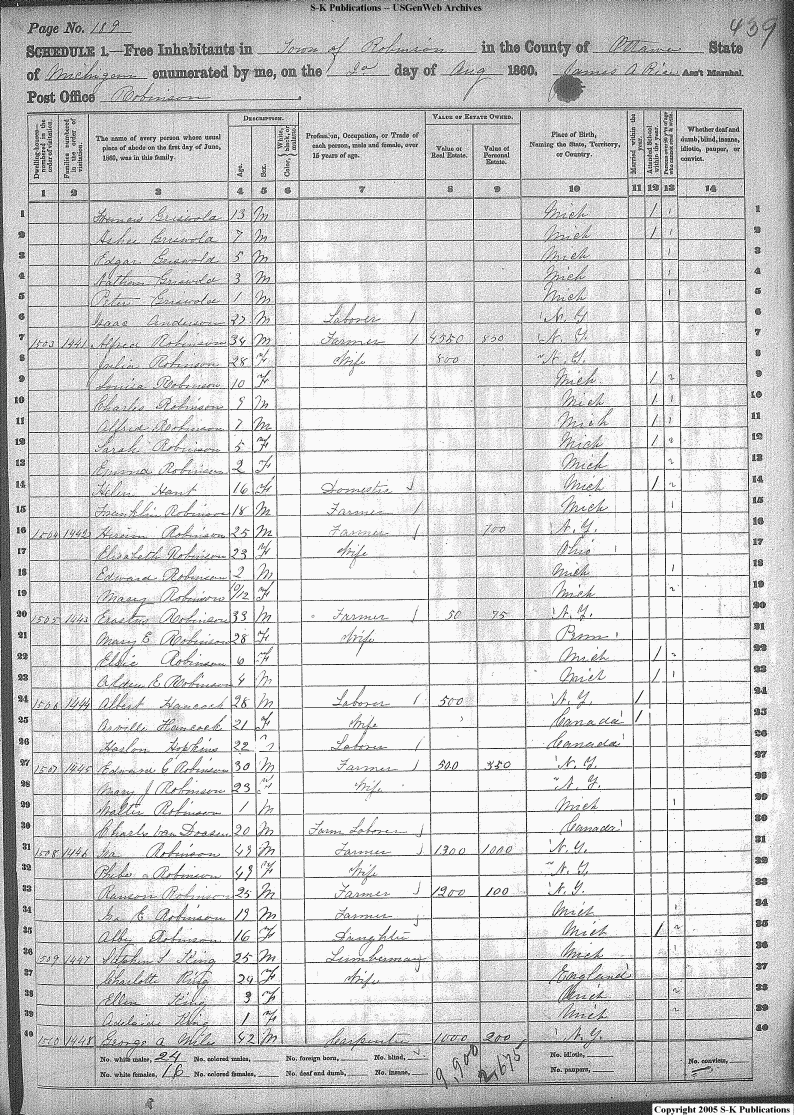 S-K Publications -- USGenWeb Archives
Page No. 189
439
SCHEDULE 1.—Free Inhabitants in Town of Robinson in the County of Ottawa State
of Michigan enumerated by me, on the 2d day of Aug 1860. James A Rice Ass't Marshal.
Post Office Robinson
DESCRIPTION. VALUE OF ESTATE OWNED.
Dwelling-houses—numbered in the order of visitation.
Families numbered in the order of visitation.
The name of every person whose usual place of abode on the first day of June, 1860, was in this family.
Age.
Sex.
Color, White, black, or mulatto.
Profession, Occupation, or Trade of each person, male and female, over 15 years of age.
Value of Real Estate.
Value of Personal Estate.
Place of Birth, Naming the State, Territory, or Country.
Married within the year.
Attended School within the year.
Whether deaf and dumb, blind, insane, idiotic, pauper, or convict.
1 2 3 4 5 6 7 8 9 10 11 12 13 14
1 Francis Griswold 13 M Mich / 1
2 Griswold 7 M Mich / 2
3 Edgar Griswold 5 M Mich 3
4 Nathan Griswold 3 M Mich 4
5 Peter Griswold 1 M Mich 5
6 Isaac Anderson 27 M Laborer N.Y. 6
7 1503 1441 Alfred Robinson 34 M Farmer 4550 N.Y. 7
8 Julia Robinson 28 F Wife 800 N.Y. 8
9 Louisa Robinson 10 F Mich / 9
10 Charles Robinson 9 M Mich / 10
11 Alfred Robinson 7 M Mich / 11
12 Sarah Robinson 5 F Mich / 12
13 Emma Robinson 2 F Mich 13
14 Helen 16 F Domestic Mich / 14
15 Franklin Robinson 18 M Farmer Mich 15
16 1504 1442 Robinson 25 M Farmer 700 N.Y. 16
17 Elizabeth Robinson 23 F Wife Ohio 17
18 Edward Robinson 2 M Mich 18
19 Mary Robinson /12 F Mich 19
20 1505 1443 Erastus Robinson 33 M Farmer 50 75 N.Y. 20
21 Mary E Robinson 28 F Wife Penn 21
22 Elsie Robinson 6 F Mich / 22
23 Alden E Robinson 4 M Mich / 23
24 1506 1444 Albert Hancock 28 M Laborer 500 N.Y. / 24
25 Hancock 21 F Wife Canada / 25
26 Hopkins 22 Laborer Canada 26
27 1507 1445 Edward C Robinson 30 M Farmer 500 350 N.Y. 27
28 Mary J Robinson 23 F Wife N.Y. 28
29 Walter Robinson 1 M Mich 29
30 Charles 20 M Farm Laborer Canada 30
31 1508 1446 Ira Robinson 49 M Farmer 1300 1000 N.Y. 31
32 Robinson 49 F Wife N.Y. 32
33 Ranson Robinson 25 M Farmer 1200 100 N.Y. 33
34 Ira E Robinson 19 M Farmer Mich 34
35 Abby Robinson 16 F Daughter Mich / 35
36 1509 1447 King 25 M Lumberman Mich 36
37 Charlotte King 24 F Wife England 37
38 Ellen King 3 F Mich 38
39 Adelaide King 1 F Mich 39
40 1510 1448 George A 42 M Carpenter 1000 200 N.Y. 40
No. white males, 24 No. colored males, No. foreign born, No. blind, No. idiotic, No. convicts,
No. white females, 16 No. colored females, No. deaf and dumb, No. insane, 9,900 2,675 No. paupers,
Copyright 2005 S-K Publications